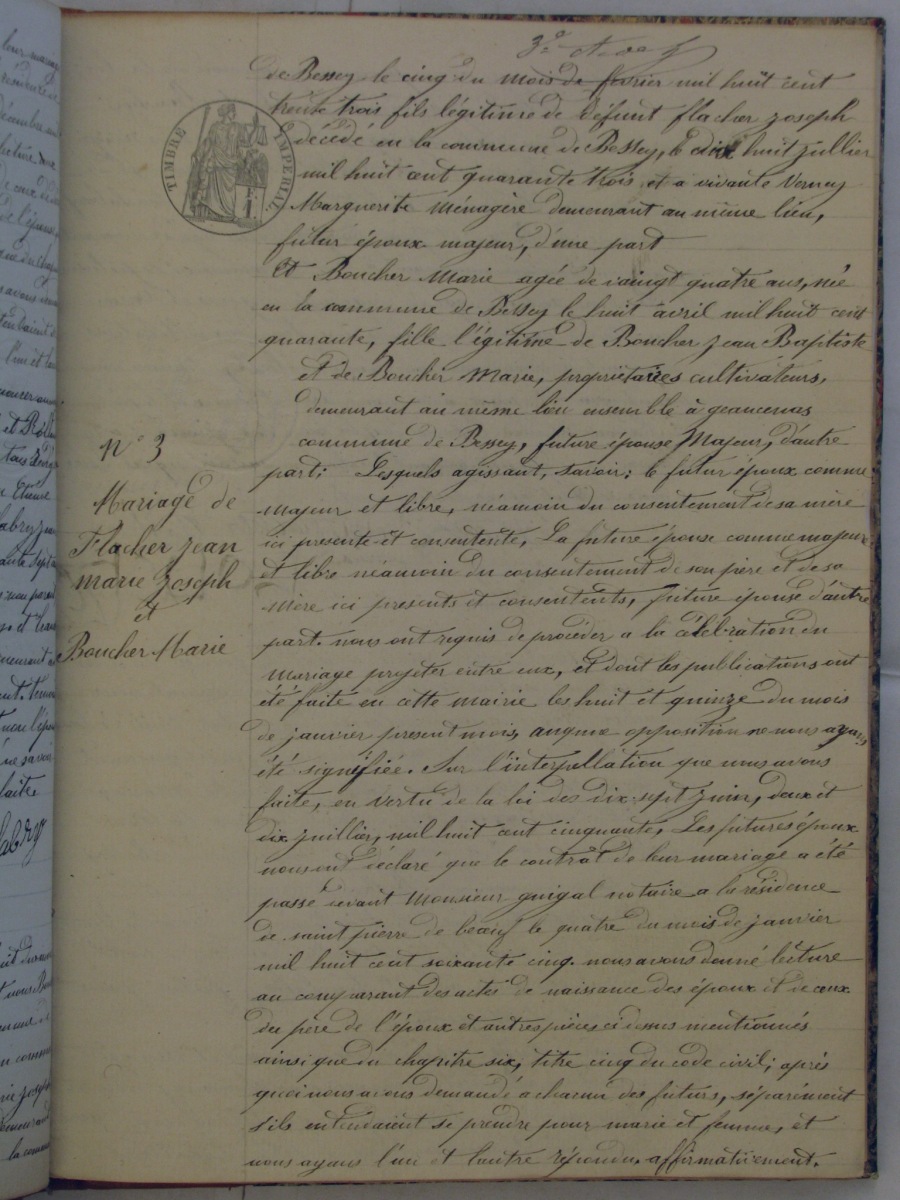 3e
de Bessey le cinq du mois de fevrier mil huit cent
trente trois fils légitime de défunt flacher joseph
décédé en la commune de Bessey, le dix huit juillier
mil huit cent quarante trois et a vivante Verney
Marguerite Ménagère demeurant au même lieu,
futur époux majeur, d'une part
Et Boucher Marie agée de vaingt quatre ans, née
en la commune de Bessey le huit avril mil huit cent
quarante, fille l'égitime de Boucher jean Baptiste
et de Boucher Marie, propriétaires cultivateurs,
demeurant au même lieu ensemble à
commune de Bessey, future épouse Majeur, d'autre
part: Lesquels agissant, savoir: le futur époux comme
majeur et libre, néamoin du consentement de sa mère
ici presente et consentente, La future épouse comme majeure
et libre néamoin du consentement de son père et de sa
mère ici presents et consentents, future épouse d'autre
part. nous ont requis de procéder a la célebration du
mariage projeter entre eux, et dont les publications ont
été faite en cette mairie les huit et quinze du mois
de janvier present mois, aucune opposition ne nous ayans
été signifiée. Sur l'interpellation que nous avons
faite, en vertu de la loi des dix-sept juin, deux et
dix juillier, mil huit cent cinquante, Les futurs époux
nous ont déclaré que le contrât de leur mariage a été
passé devant Monsieur guigal notaire a la résidence
de saint pierre de beauf le quatre du mois de janvier
mil huit cent soixante cinq. nous avons donné lecture
au comparant des actes de naissance des époux et de ceux
du père de l'époux et autres pièces ci dessus mentionnés
ainsi que du chapitre six, titre cinq du code civil; après
quoi nous avons demandé a chacun des futurs, séparément
s'ils entendaient se prendre pour marie et femme, et
nous ayans l'un et l'autre répondu affirmativement.
TIMBRE IMPÉRIAL
N° 3
Mariage de
Flacher jean
marie joseph
et
Boucher Marie